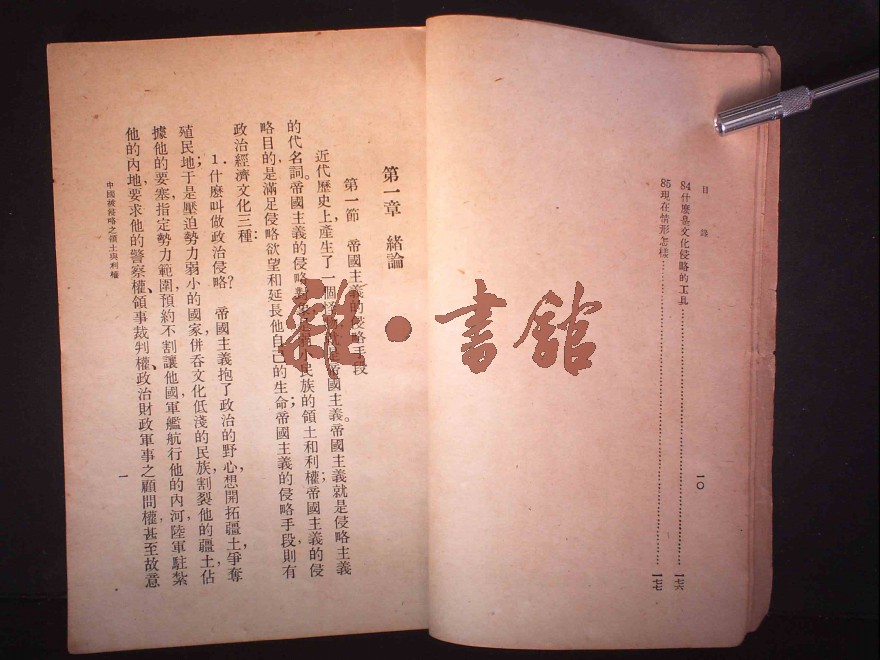 目錄
84什麼是文化侵略的工具……一七六
85現在情形怎樣……一七七
一〇
雜·書館
第一章 緒論
第一節 帝國主義的侵略手段
近代歷史上,產生了一個怪 帝國主義。帝國主義就是侵略主義
的代名詞。帝國主義的侵略對 民族的領土和利權;帝國主義的侵
略目的,是滿足侵略欲望和延長他自己的生命;帝國主義的侵略手段,則有
政治經濟文化三種:
1.什麼叫做政治侵略? 帝國主義抱了政治的野心,想開拓疆土,爭奪
殖民地;于是壓迫勢力弱小的國家,併吞文化低淺的民族,割裂他的疆土,佔
據他的要塞,指定勢力範圍,預約不割讓他國,軍艦航行他的內河,陸軍駐紮
他的內地,要求他的警察權、領事裁判權、政治財政軍事之顧問權,甚至故意
中國被侵略之領土與利權
一